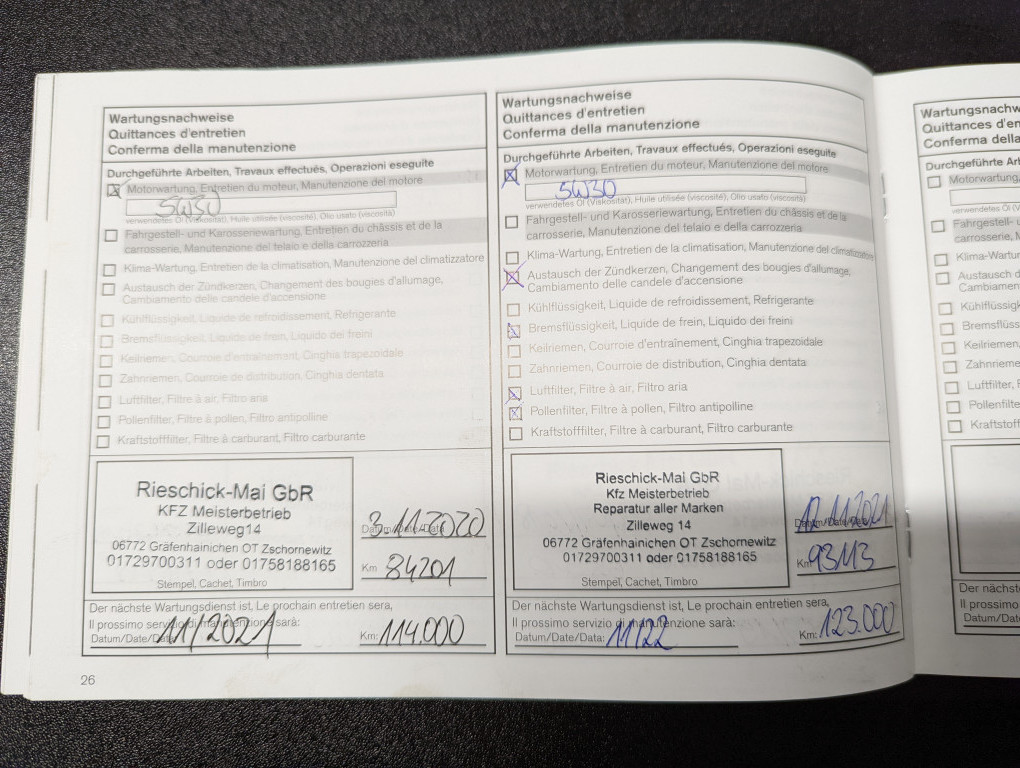 Wartungsnachweise
Quittances d'entretien
Conferma della manutenzione
Durchgeführte Arbeiten, Travaux effectués, Operazioni eseguite
Motorwartung, Entretien du moteur, Manutenzione del motore
5W30
verwendetes Öl (Viskosität), Huile utilisée (viscosité), Olio usato (viscosità)
Fahrgestell- und Karosseriewartung, Entretien du châssis et de la
carrosserie, Manutenzione del telaio e della carrozzeria
Klima-Wartung, Entretien de la climatisation, Manutenzione del climatizzatore
Austausch der Zündkerzen, Changement des bougies d'allumage,
Cambiamento delle candele d'accensione
Kühlflüssigkeit, Liquide de refroidissement, Refrigerante
Bremsflüssigkeit, Liquide de frein, Liquido dei freini
Keilriemen, Courroie d'entraînement, Cinghia trapezoidale
Zahnriemen, Courroie de distribution, Cinghia dentata
Luftfilter, Filtre à air, Filtro aria
Pollenfilter, Filtre à pollen, Filtro antipolline
Kraftstofffilter, Filtre à carburant, Filtro carburante
Rieschick-Mai GbR
KFZ Meisterbetrieb
Zilleweg14
06772 Gräfenhainichen OT Zschornewitz
01729700311 oder 01758188165
Stempel, Cachet, Timbro
Datum/Date/Data 3.11.2020
Km 84201
Der nächste Wartungsdienst ist, Le prochain entretien sera,
Il prossimo servizio di manutenzione sarà:
Datum/Date/Data: 11/2021 Km: 114.000
26
Wartungsnachweise
Quittances d'entretien
Conferma della manutenzione
Durchgeführte Arbeiten, Travaux effectués, Operazioni eseguite
Motorwartung, Entretien du moteur, Manutenzione del motore
5W30
verwendetes Öl (Viskosität), Huile utilisée (viscosité), Olio usato (viscosità)
Fahrgestell- und Karosseriewartung, Entretien du châssis et de la
carrosserie, Manutenzione del telaio e della carrozzeria
Klima-Wartung, Entretien de la climatisation, Manutenzione del climatizzatore
Austausch der Zündkerzen, Changement des bougies d'allumage,
Cambiamento delle candele d'accensione
Kühlflüssigkeit, Liquide de refroidissement, Refrigerante
Bremsflüssigkeit, Liquide de frein, Liquido dei freini
Keilriemen, Courroie d'entraînement, Cinghia trapezoidale
Zahnriemen, Courroie de distribution, Cinghia dentata
Luftfilter, Filtre à air, Filtro aria
Pollenfilter, Filtre à pollen, Filtro antipolline
Kraftstofffilter, Filtre à carburant, Filtro carburante
Rieschick-Mai GbR
Kfz Meisterbetrieb
Reparatur aller Marken
Zilleweg 14
06772 Gräfenhainichen OT Zschornewitz
01729700311 oder 01758188165
Stempel, Cachet, Timbro
Datum/Date/Data 12.11.2021
Km 93113
Der nächste Wartungsdienst ist, Le prochain entretien sera,
Il prossimo servizio di manutenzione sarà:
Datum/Date/Data: 11/22 Km: 123.000
Wartungsnachw
Quittances d'en
Conferma della
Durchgeführte Ar
Motorwartung,
Fahrgestell- u
carrosserie, M
Klima-Wartu
Austausch d
Cambiament
Kühlflüssigk
Bremsflüssi
Keilriemen,
Zahnrieme
Luftfilter, F
Pollenfilte
Kraftstoff
Der nächste W
Il prossimo
Datum/Date